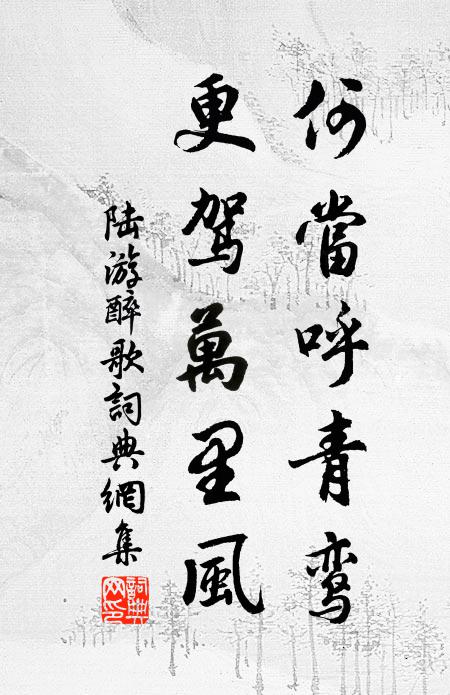 何當呼青鸾
更驾萬里風
陆游醉歌詞典網集
詞典網印